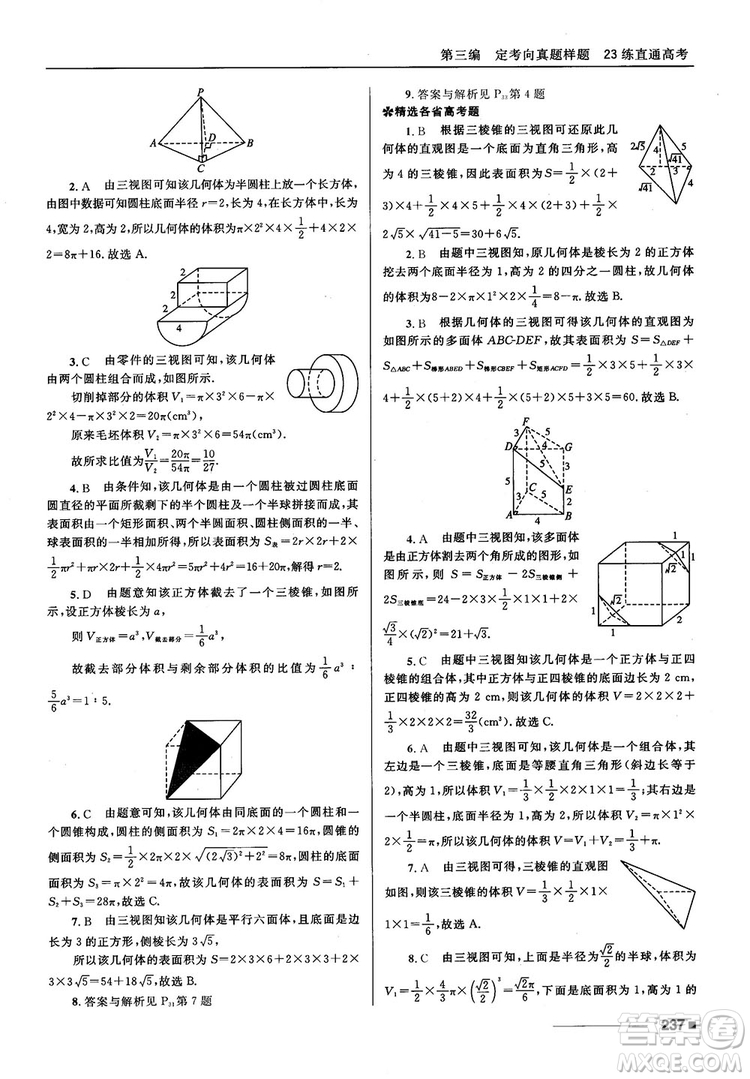 第三编　定考向真题样题　23练直通高考
P
A
D
B
C
2. A　由三视图可知该几何体为半圆柱上放一个长方体,
由图中数据可知圆柱底面半径 r=2,长为 4,长方体长为
4,宽为 2,高为 2,所以几何体的体积为 π×2²×4×1/2+4×2×
2=8π+16.故选 A.
2
2
2
4
3. C　由零件的三视图可知,该几何体
由两个圆柱组合而成,如图所示.
切削掉部分的体积 V₁=π×3²×6-π×
2²×4-π×3²×2=20π(cm³),
原来毛坯体积 V₂=π×3²×6=54π(cm³).
故所求比值为V₁/V₂=20π/54π=10/27.
4. B　由条件知,该几何体是由一个圆柱被过圆柱底面
圆直径的平面所截剩下的半个圆柱及一个半球拼接而成,其
表面积由一个矩形面积、两个半圆面积、圆柱侧面积的一半、
球表面积的一半相加所得,所以 S表=2r×2r+2×
1/2πr²+πr×2r+1/2×4πr²=5πr²+4r²=16+20π,解得 r=2.
5. D　由题意知该正方体截去了一个三棱锥,如图所
示,设正方体棱长为 a,
则 V正方体=a³,V截去部分=1/6a³,
故截去部分体积与剩余部分体积的比值为 1/6a³ :
5/6a³=1:5.
6. C　由题意可知,该几何体由同底面的一个圆柱和一
个圆锥构成,圆柱的侧面积为 S₁=2π×2×4=16π,圆锥的
侧面积为 S₂=1/2×2π×2×√((2√3)²+2²)=8π,圆柱的底面
面积为 S₃=π×2²=4π,故该几何体的表面积为 S=S₁+
S₂+S₃=28π,故选 C.
7. B　由三视图知该几何体是平行六面体,且底面是边
长为 3 的正方形,侧棱长为 3√5,
所以该几何体的表面积为 S=2×3×6+2×3×3+2
×3×3√5=54+18√5,故选 B.
8. 答案与解析见 P₃₁第 7 题
9. 答案与解析见 P₃₃第 4 题
精选各省高考题
1. B　根据三棱锥的三视图可还原此几
何体的直观图是一个底面为直角三角形,高
为 4 的三棱锥,因此表面积为 S=1/2×(2+
3)×4+1/2×4×5+1/2×4×(2+3)+1/2×
2√5×√(41-5)=30+6√5.
2√5
5
√41
√41
2. B　由题中三视图知,原几何体是棱长为 2 的正方体
挖去两个底面半径为 1,高为 2 的四分之一圆柱,故几何体
的体积为8-2×π×1²×2×1/4=8-π.故选 B.
3. B　根据几何体的三视图可得该几何体的直观图为
如图所示的多面体 ABC-DEF,故其表面积为 S=S△DEF+
S△ABC+S梯形ABED+S梯形CBEF+S矩形ACFD=1/2×3×5+1/2×3×
4+1/2×(5+2)×4+1/2×(5+2)×5+3×5=60.故选 B.
F
3
5
D
G
4
3
E
5
C
2
A
4
B
4. A　由题中三视图知,该多面体
是由正方体割去两个角所成的图形,如
图所示,则 S=S正方体-2S三棱锥侧+
2S三棱锥底=24-2×3×1/2×1×1+2×
√3/4×(√2)²=21+√3.
1
√2
1
1
√2
1
5. C　由题中三视图知该几何体是一个正方体与正四
棱锥的组合体,其中正方体与正四棱锥的底面边长为 2 cm,
正四棱锥的高为 2 cm,则该几何体的体积 V=2×2×2+
1/3×2×2×2=32/3(cm³).故选 C.
6. A　由题中三视图知该几何体是一个组合体,其
左边是一个三棱锥,底面是等腰直角三角形(斜边长等于
2),高为 1,所以体积 V₁=1/3×1/2×2×1×1=1/3;其右边是
一个半圆柱,底面半径为 1,高为 2,所以体积 V₂=π·1²·
2·1/2=π,所以该几何体的体积 V=V₁+V₂=1/3+π.
7. A　由三视图可得,三棱锥的直观图
如图所示,则该三棱锥的体积 V=1/3×1/2×1×
1×1=1/6.
8. C　由三视图可知,上面是半径为√2/2的半球,体积为
V₁=1/2×4/3π×(√2/2)³=√2π/6,下面是底面积为 1,高为 1 的
237
答案圈
MXQE.COM